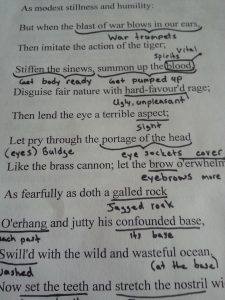 As modest stillness and humility:
But when the blast of war blows in our ears,
War trumpets
Then imitate the action of the tiger;
Vital
Spirits
Stiffen the sinews, summon up the blood,
Get body ready Get pumped up
Disguise fair nature with hard-favour'd rage;
Ugly, unpleasant
Then lend the eye a terrible aspect;
Sight
Let pry through the portage of the head
(eyes) Buldge eye sockets cover
Like the brass cannon; let the brow o'erwhelm
eyebrows more
As fearfully as doth a galled rock
Jagged rock
O'erhang and jutty his confounded base,
each past its base
Swill'd with the wild and wasteful ocean.
washed (at the base)
Now set the teeth and stretch the nostril wi